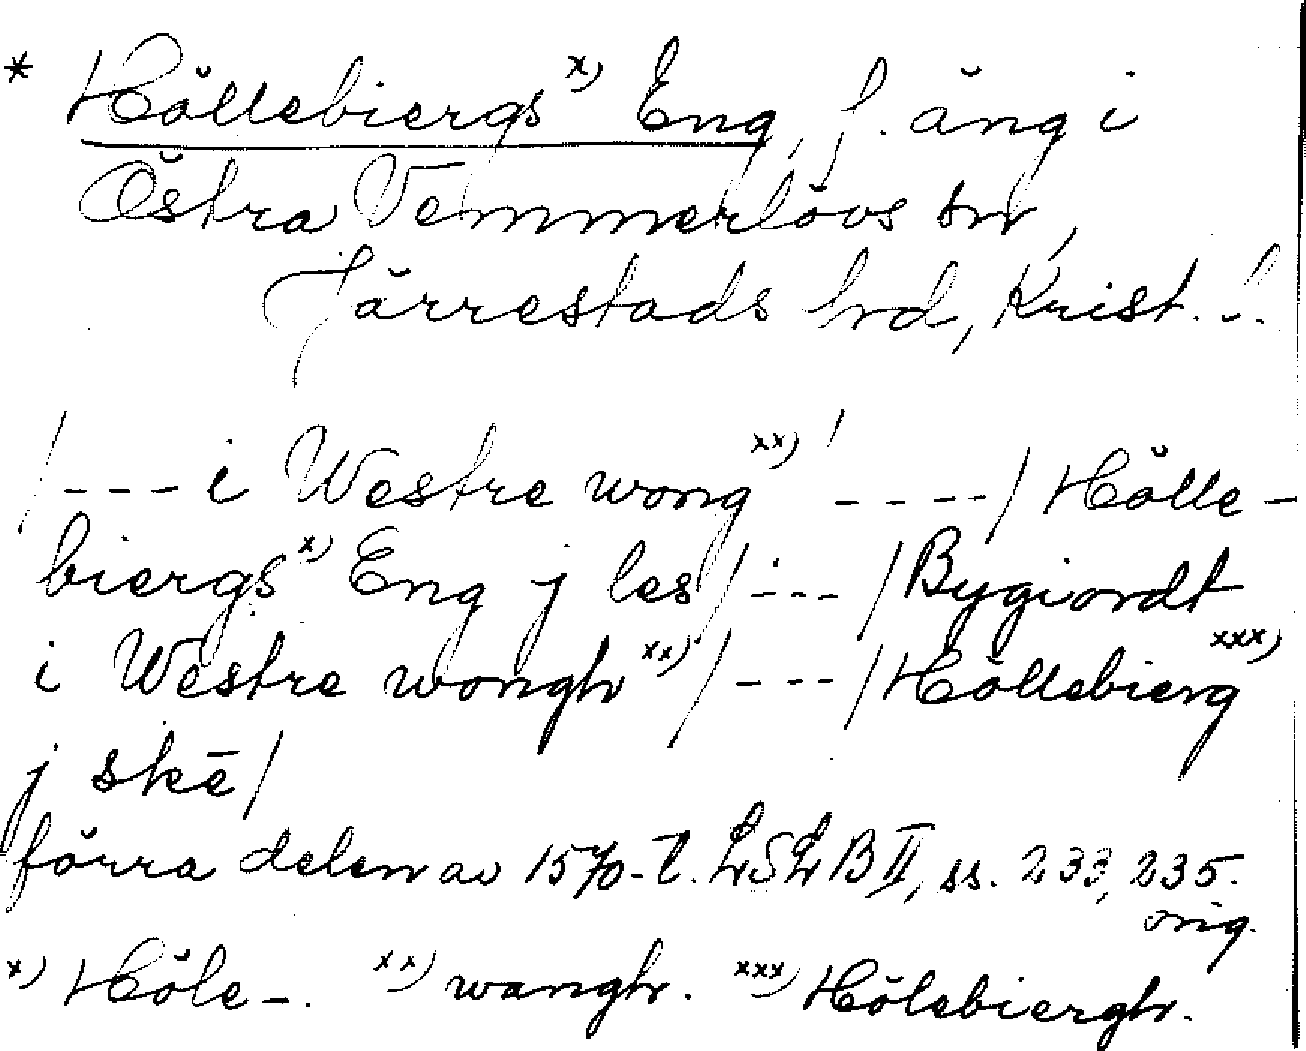 * Höllebiergs x) Eng, f. äng i
Östra Vemmerlövs sn,
Järrestads hrd, Krist. l.
/---i Westre wong xx) ----/ Hölle-
biergs x) Eng j les /---/ Bygiordt
i Westre wongh xx) /---/ Höllebierg xxx)
j skē/
förra delen av 1570-t. LSLB II, ss. 233, 235.
orig.
x) Höle-. xx) wangh. xxx) Hölebiergh.